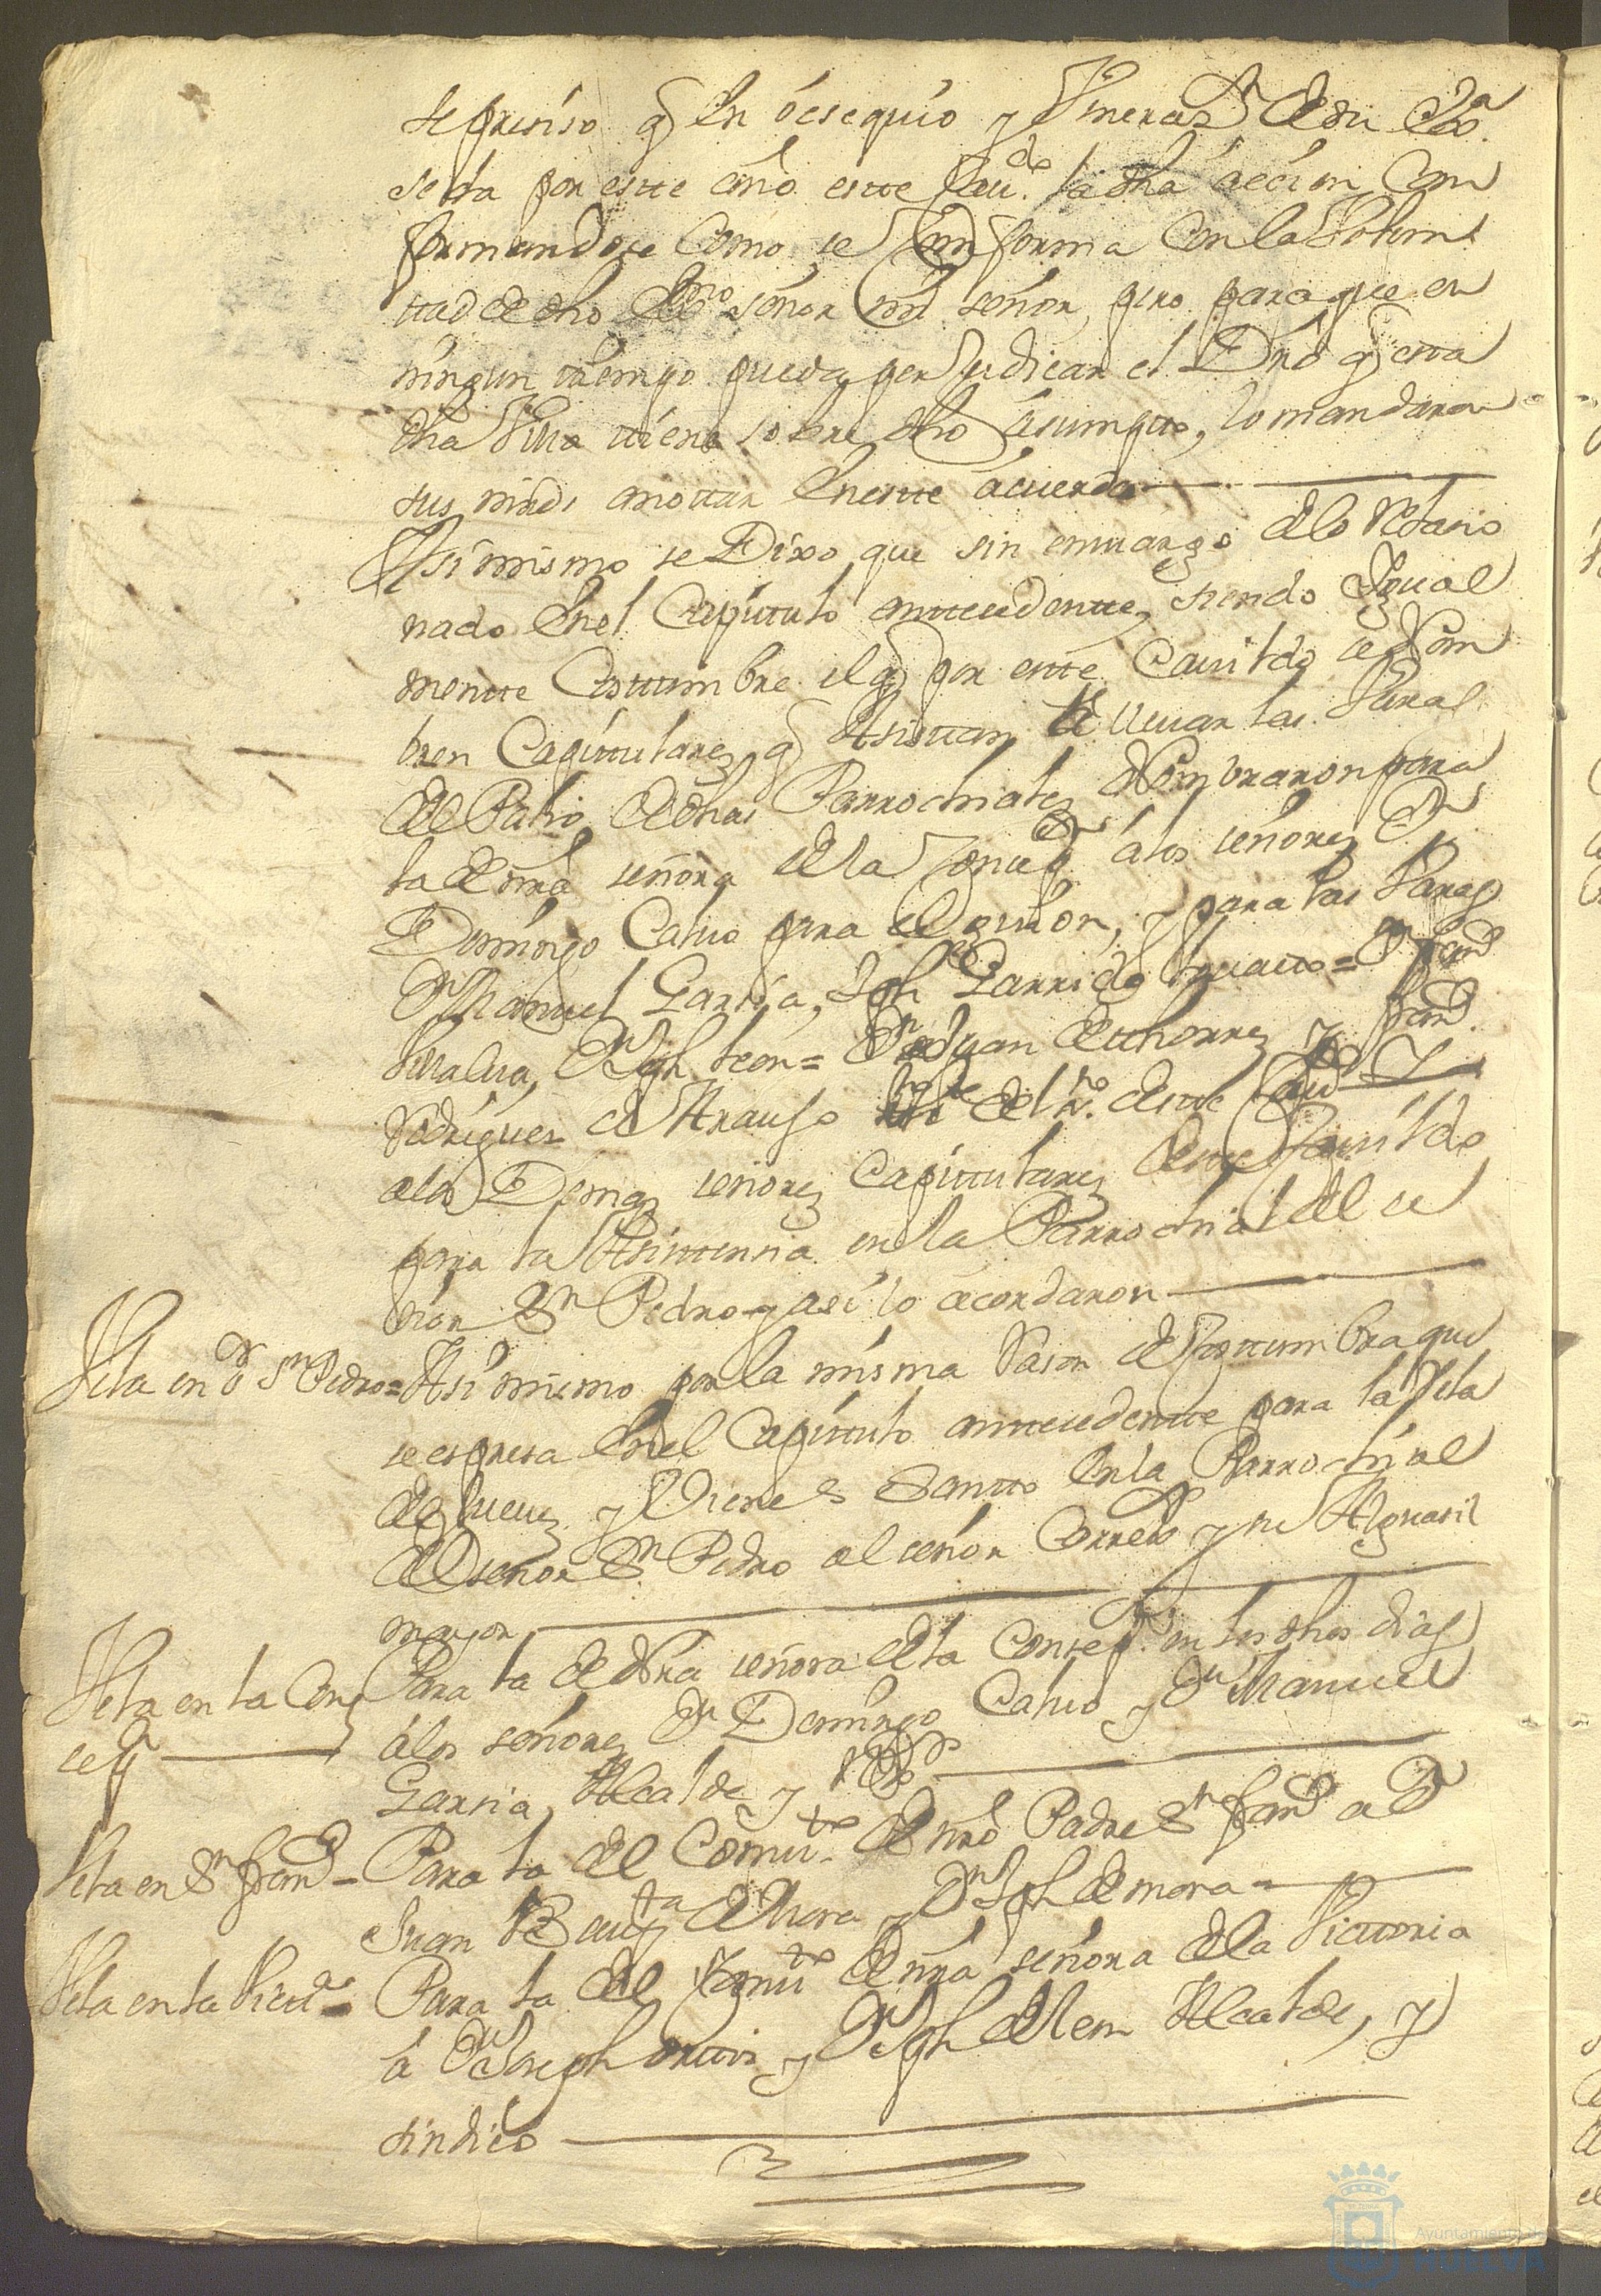 se presiso q en obsequio y Veneraz.n de su Exa.
seda por este año este Cau.do la dha accion Con
formandose Como se Conforma Con la Volun
ttad de dho Exmo señor mi señor, pero para que en
ningun ttiempo pueda perjudicar el Dro q esta
dha Villa ttiene sobre dho asumpto, lo mandaron
sus mrds anottar en este acuerdo
Assi mismo se Dixo que sin embargo de lo Relacio
nado en el Capitulo anttecedentte, siendo Igual
mentte Costtumbre el q por este Cauildo se Nom
bren Capittulares q Asistan a lleuar las Varas
del Palio de dhas Parrochiales Nombraron para
la de nra señora de la Concep.n a los señores Dn
Domingo Caluo para el guion, y para las Varas
Dn Manuel Garsia, Jph Garrido = Dn Fran.co
Villalua, Dn Jph Leon = Dn Juan de thorres y Fran.co
Rodrigues de Araujo del n.o de este Cau.do Y
a los Demas señores Capittulares de este Cauildo
para la Asisttensia en la Parrochial del se
ñor Sn Pedro y asi lo acordaron
Vela en Sr Sn Pedro = Asi mismo por la misma Rason de Costtumbre que
se espresa en el Capittulo anttecedentte para la Vela
de Jueues y Viernes Santto en la Parrochial
del señor Sn Pedro al señor Correxor y su Alguasil
mayor
Vela en la Con
cep.n
Para la de Nra señora de la Concep.n en los dhos dias
a los señores Dn Domingo Caluo y Dn Manuel
Garsia, Alcalde y Rexor
Vela en Sn Fran.co = Para la del Comu.to de nro Padre Sn Fran.co a Dn
Juan Baup.ta de Mora y Dn Jph de mora =
Vela en la Victa = Para la del Comu.to de nra señora de la Victtoria
a Dn Joseph orttis y Dn Jph de leon Alcalde, y
sindico
Ayuntamiento de
HUELVA